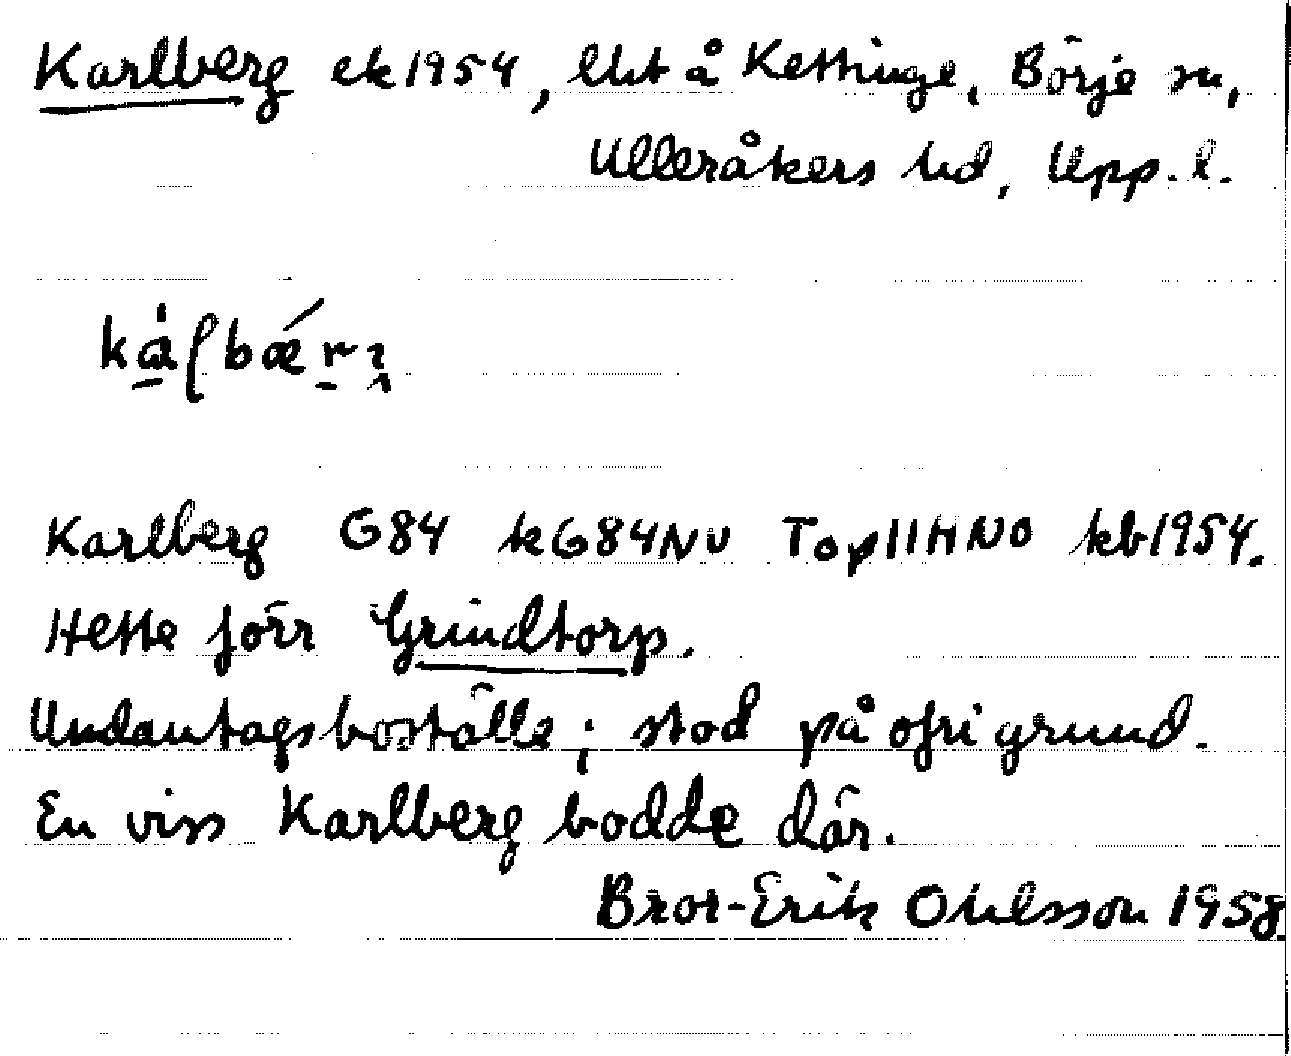 Karlberg ek1954, lht å Kettinge, Börje sn,
Ulleråkers hd, Uppl.
Karlberg G84 kG84NV Top11HNO kb1954.
Hette förr Grindtorp.
Undantagsboställe; stod på ofri grund.
En viss Karlberg bodde där.
Bror-Erik Ohlsson 1958.